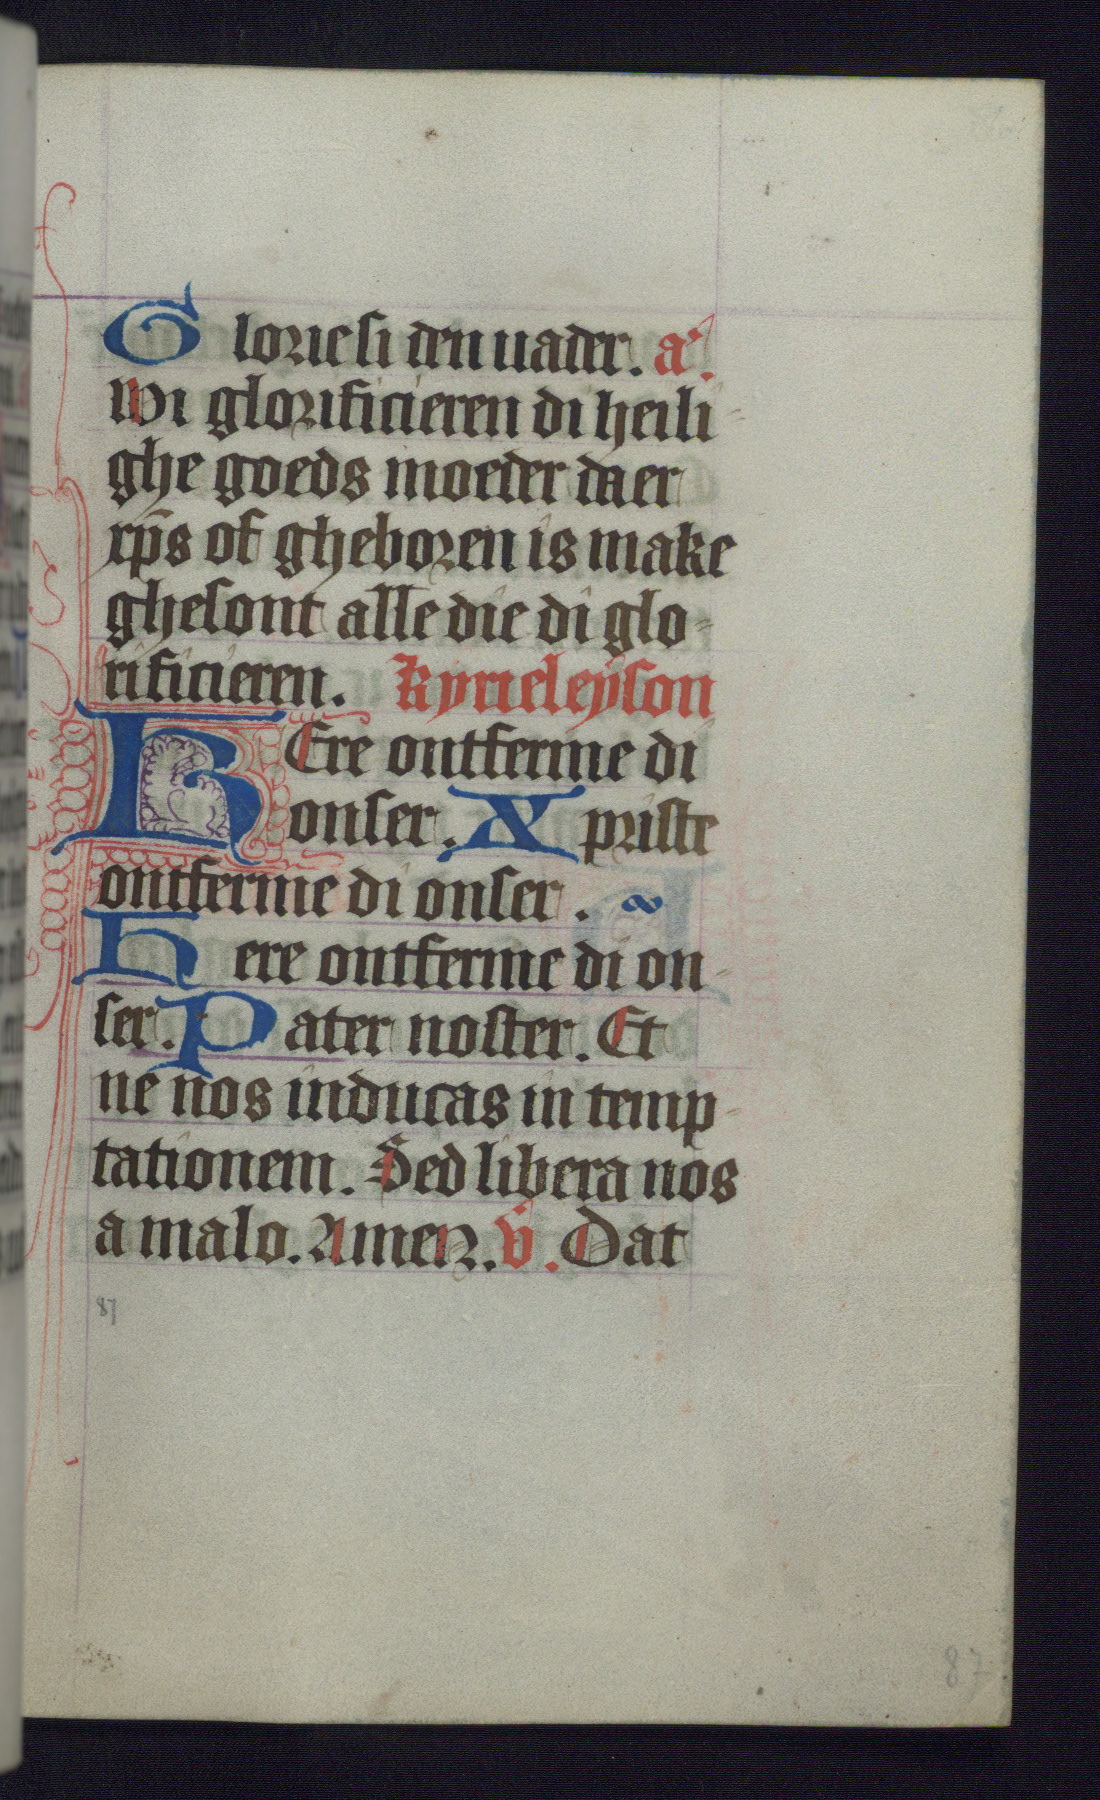 Glorie si den uader. a'.
Wi glorificieren di heili-
ghe goeds moeder daer
xp̄s of gheboren is make
ghesont alle die di glo-
rificieren. Kyrieleyson
HEre ontferme di
onser. Xpriste
ontferme di onser.
Here ontferme di on-
ser. Pater noster. Et
ne nos inducas in temp-
tationem. Sed libera nos
a malo. Amen. v̄. Dat
87
87